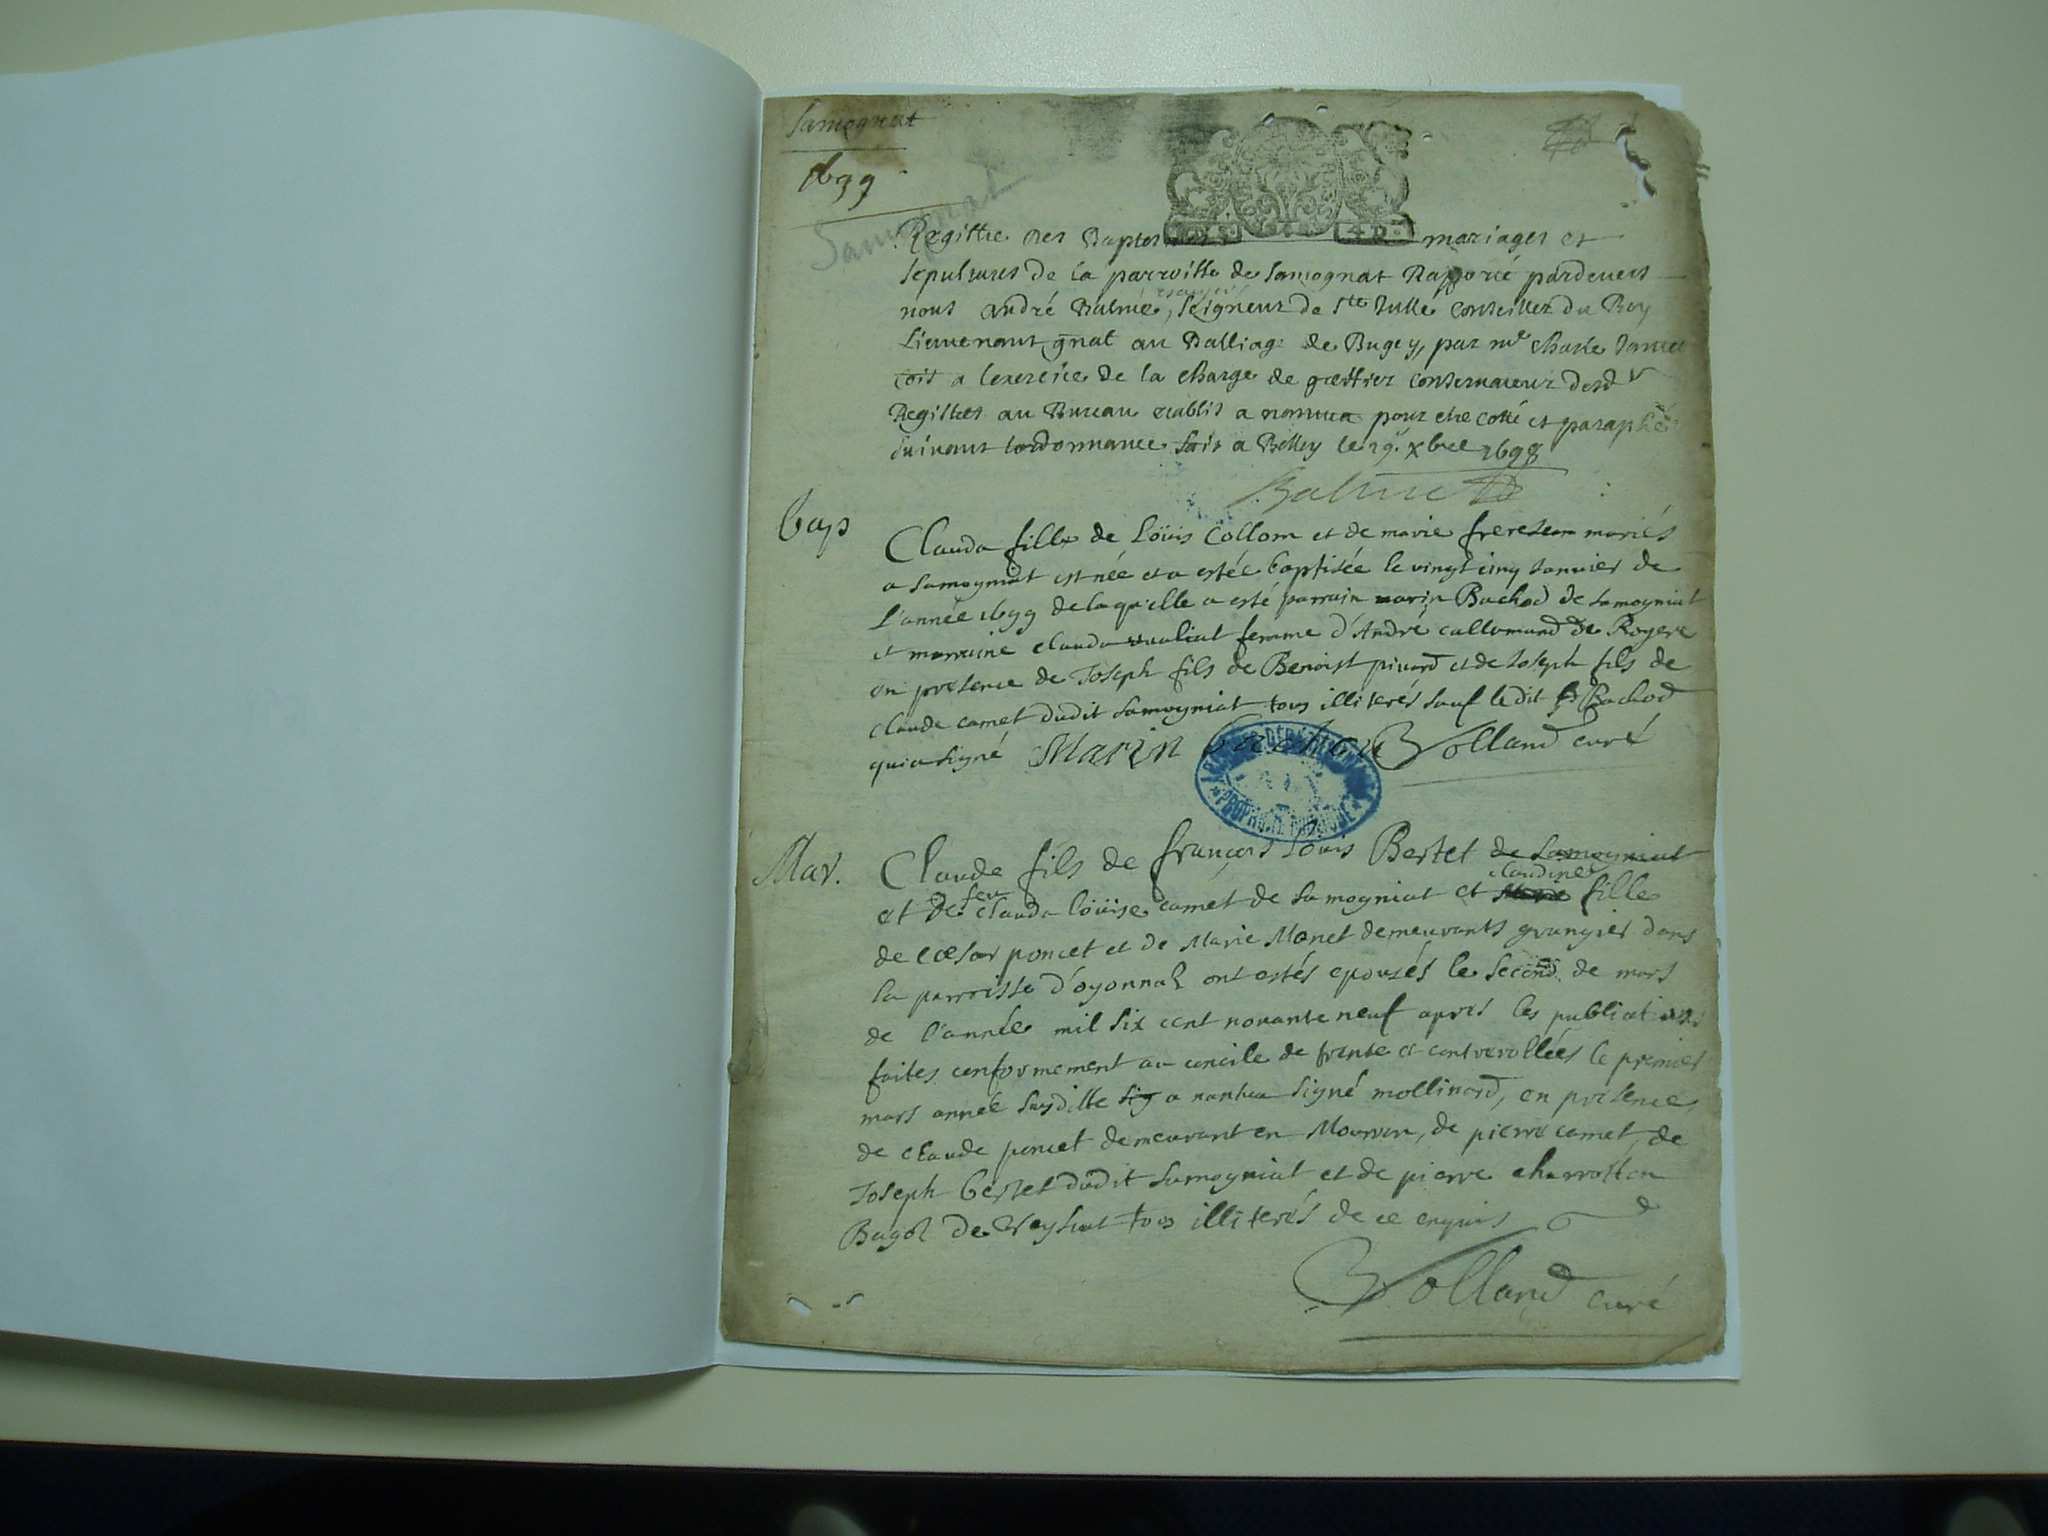 Samognat
1699
Samognat
Registre des Baptesmes mariages et
sepultures de la parroisse de Samognat Rapporté pardevers
nous andré Balme, escuyer Seigneur de Ste Jullé Conseiller du Roy
Lieutenant gnal au Balliage de Bugey, par me
a lexercice de la charge de greffier conservateur desd
Registres au Bureau establis a nantua pour etre cotté et paraphé
suivant lordonnance fait a Belley le 19e xbre 1698
Balme
bap
Clauda fille de Loüis Collom et de marie frerejean mariés
a samogniat est née et a estée baptisée le vingt cinq Janvier de
l'année 1699 de laquelle a esté parrain marin Bachod de samogniat
et marraine clauda vualiat femme d'André callamand de Rogere
en presence de Joseph fils de Benoist pinard et de Joseph fils de
claude camet dudit samogniat tous illiterés sauf ledit Bachod
qui a signé Marin bachod Rolland curé
ARCHIVES DEPARTEMENTALES
PROPRIETE PUBLIQUE
Mar.
Claude fils de françois Loüis Bertet de samogniat
et de feu clauda loüise camet de samogniat et Marie claudine fille
de cœsar poncet et de Marie Monet demeurants grangier dans
la parroisse d'oyonnaz ont estés epousés le second de mars
de l'année mil six cent nonante neuf apres les publications
faites conformement au concile de trente et controrollées le premier
mars année susditte sig a nantua signé mollinard, en presence
de claude poncet demeurant en Mournon, de pierre camet, de
Joseph bertet dudit samogniat et de pierre charrotton
Bugoz de Veysiat tous illiterés de ce enquis
Rolland curé